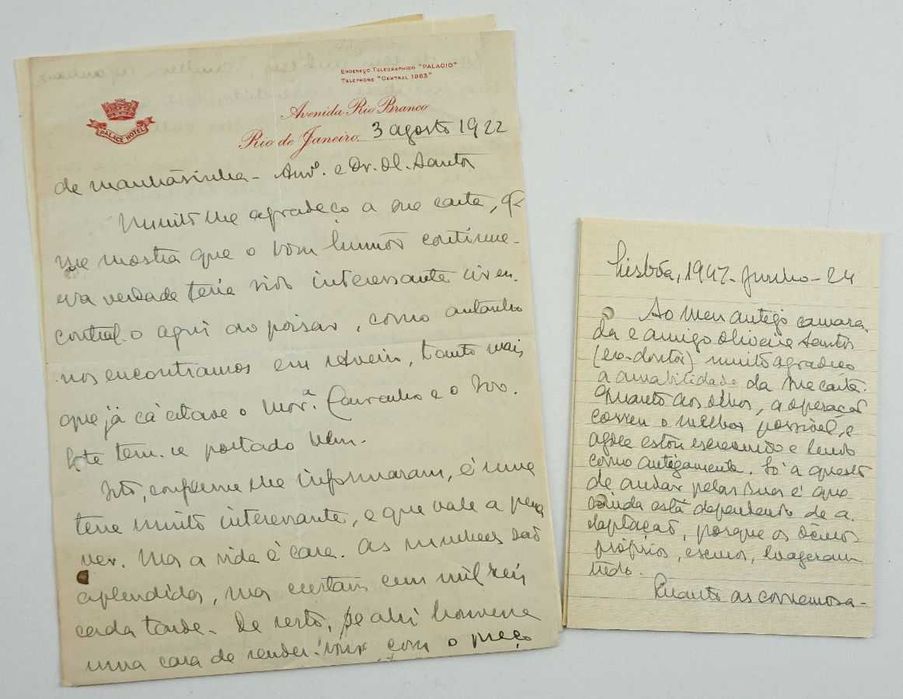 ENDEREÇO TELEGRAPHICO "PALACIO"
TELEPHONE "CENTRAL 1963"
PALACE HOTEL
Avenida Rio Branco
Rio de Janeiro, 3 agosto 1922
de manhãsinha - Amº. e Dr. Ol. Santos
Muito lhe agradeço a sua carta, q
me mostra que o bom humor continua.
na verdade teria sido interessante
control-o aqui ao poisar, como
nos encontramos em, tanto mais
que já cá estava o e o
Este tem-se portado bem.
Isto, conforme me informaram, é uma
terra muito interessante, e que vale a pena
ver. Mas a vida é cara. As mulheres são
esplendidas, mas custam cem mil reis
cada tarde. De resto, se ahi houvesse
uma casa de com o preço
Lisbôa, 1947-Junho-24
Ao meu antigo camara-
da e amigo Oliveira Santos
(ex-doutor) muito agradeço
a amabilidade da sua carta.
Quanto aos olhos, a operação
correu o melhor possivel, e
agora estou escrevendo e lendo
como antigamente. Só a questão
de andar pelas ruas é que
ainda está dependente de a-
daptação, porque os oculos
proprios, exageram
tudo.
Quanto as